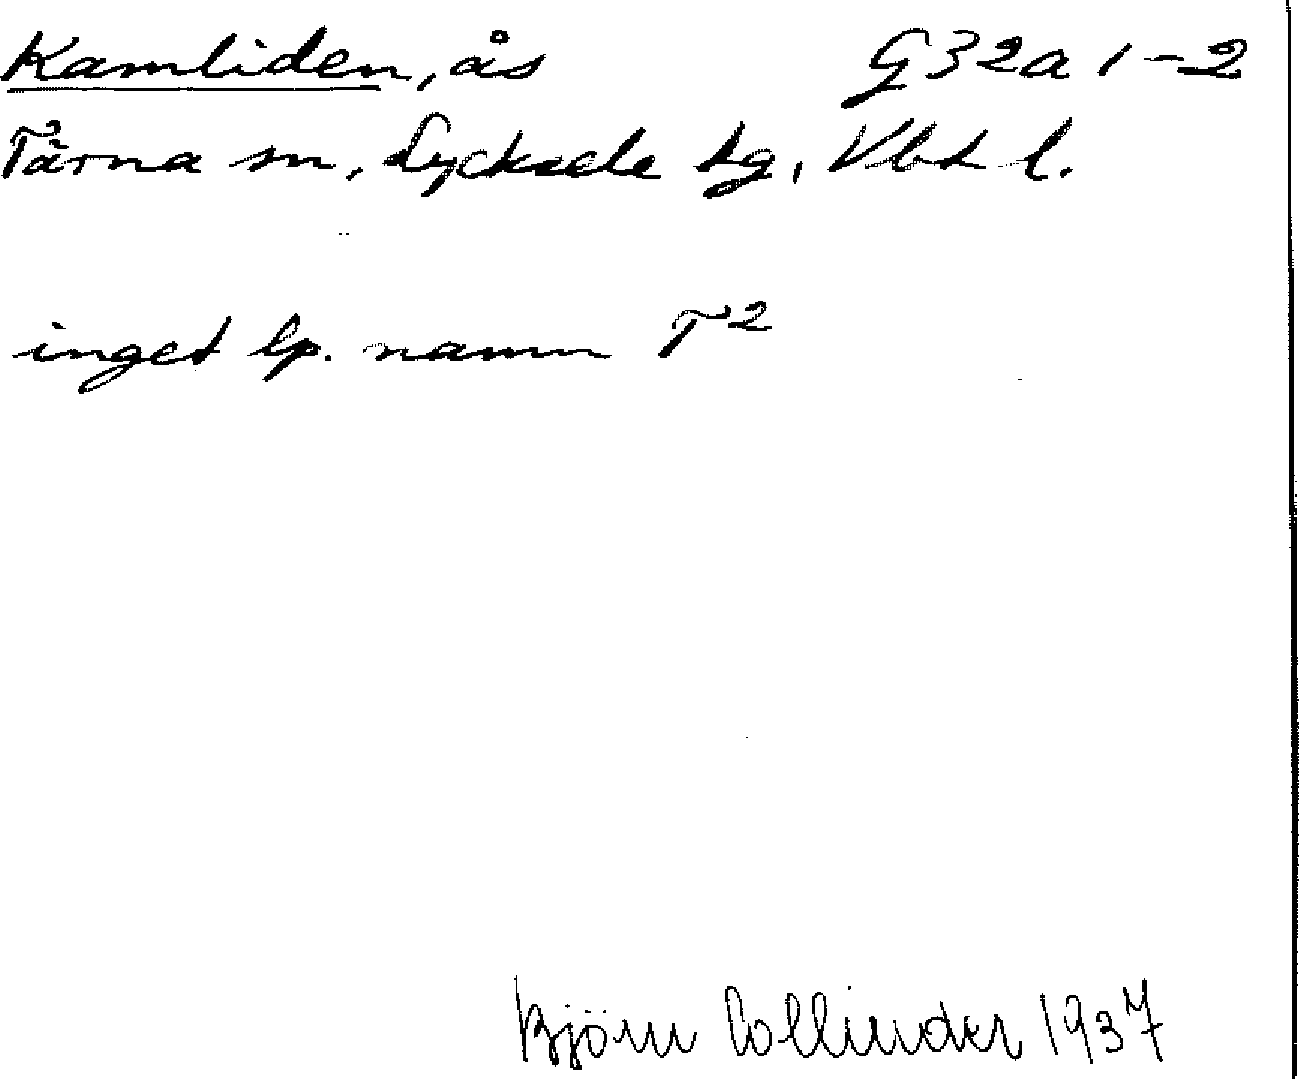 Kamliden, ås G32a 1-2
Tärna sn, Lycksele lg, Vbt l.
inget lp. namn T²
Björn Collinder 1937